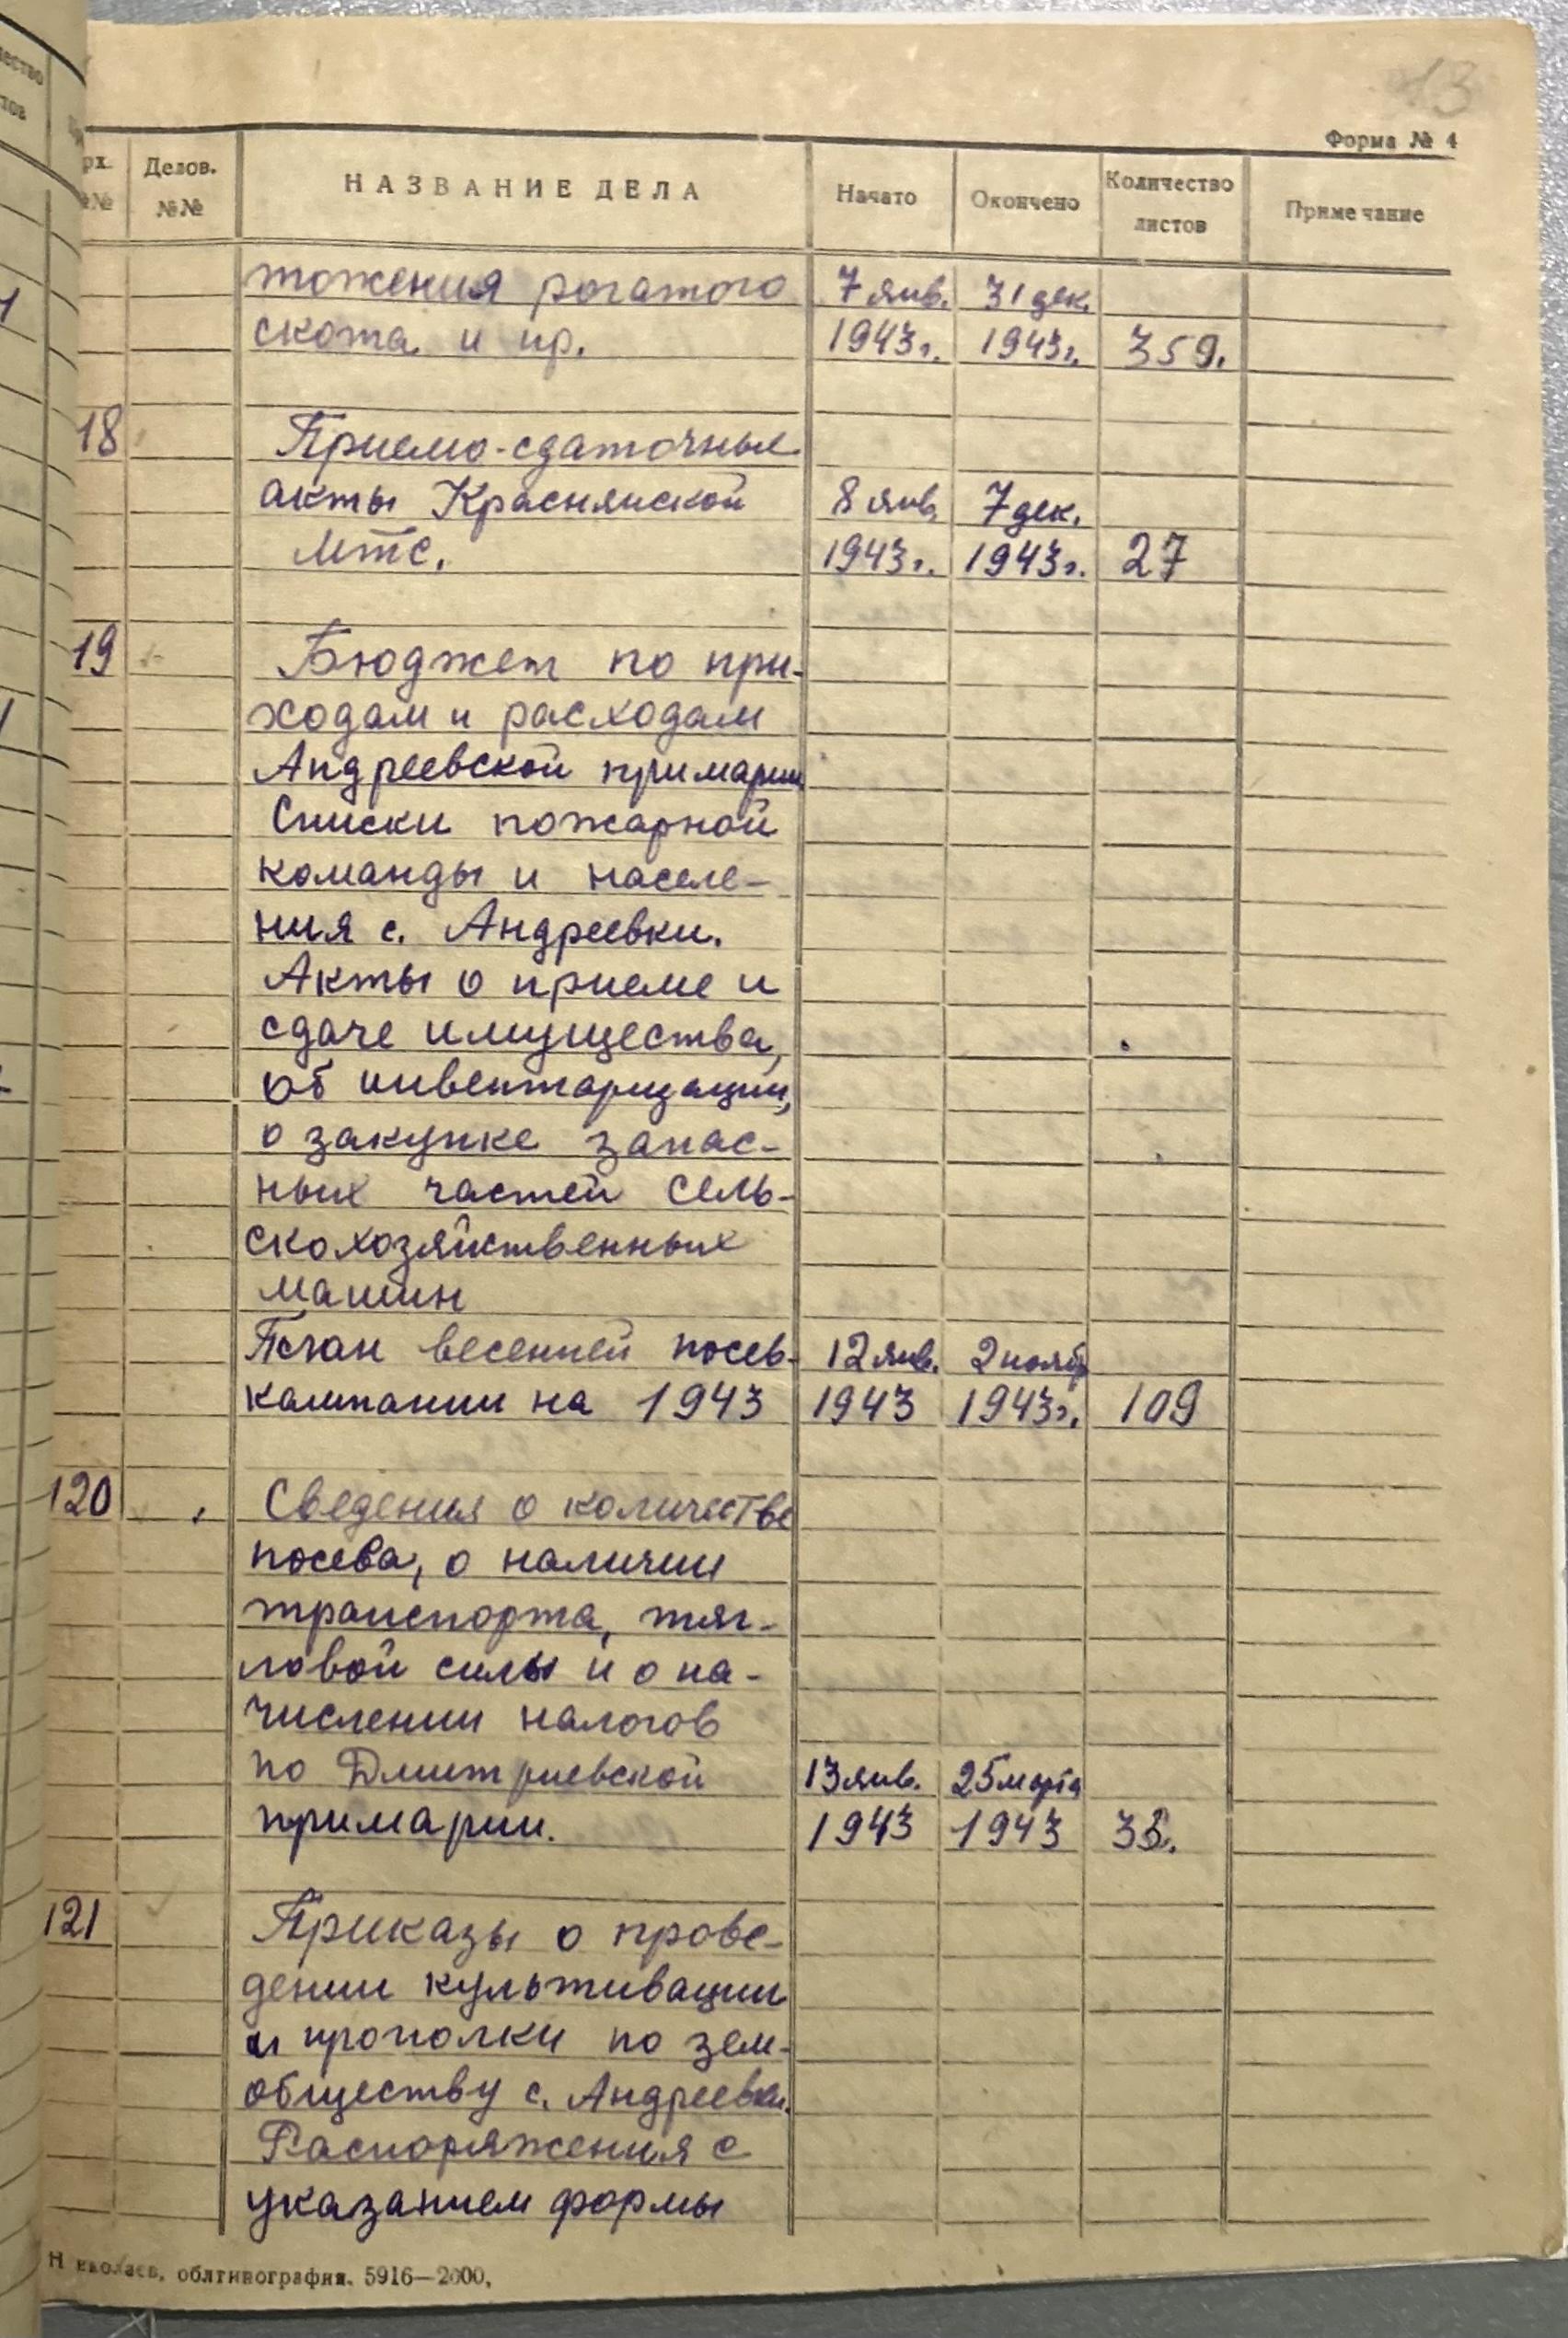 13
Форма № 4
рх. №№ Делов. №№ НАЗВАНИЕ ДЕЛА Начато Окончено Количество листов Примечание
тожения рогатого 7 янв. 31 дек.
скота и пр. 1943г. 1943г. 359.
18 Приемо-сдаточные
акты Краснянской 8 янв. 7 дек.
МТС. 1943г. 1943г. 27
19 Бюджет по при-
ходам и расходам
Андреевской примарии
Списки пожарной
команды и населе-
ния с. Андреевки.
Акты о приеме и
сдаче имущества,
об инвентаризации,
о закупке запас-
ных частей сель-
скохозяйственных
машин
План весенней посев- 12 янв. 2 нояб
кампании на 1943 1943 1943г. 109
120 Сведения о количестве
посева, о наличии
транспорта, тяг-
ловой силы и о на-
числении налогов
по Дмитриевской 13 янв. 25 марта
примарии. 1943 1943
121 Приказы о прове-
дении культивации
и прополки по зем-
обществу с. Андреевки.
Распоряжения с
указанием формы
Николаев, облтипография. 5916—2000.